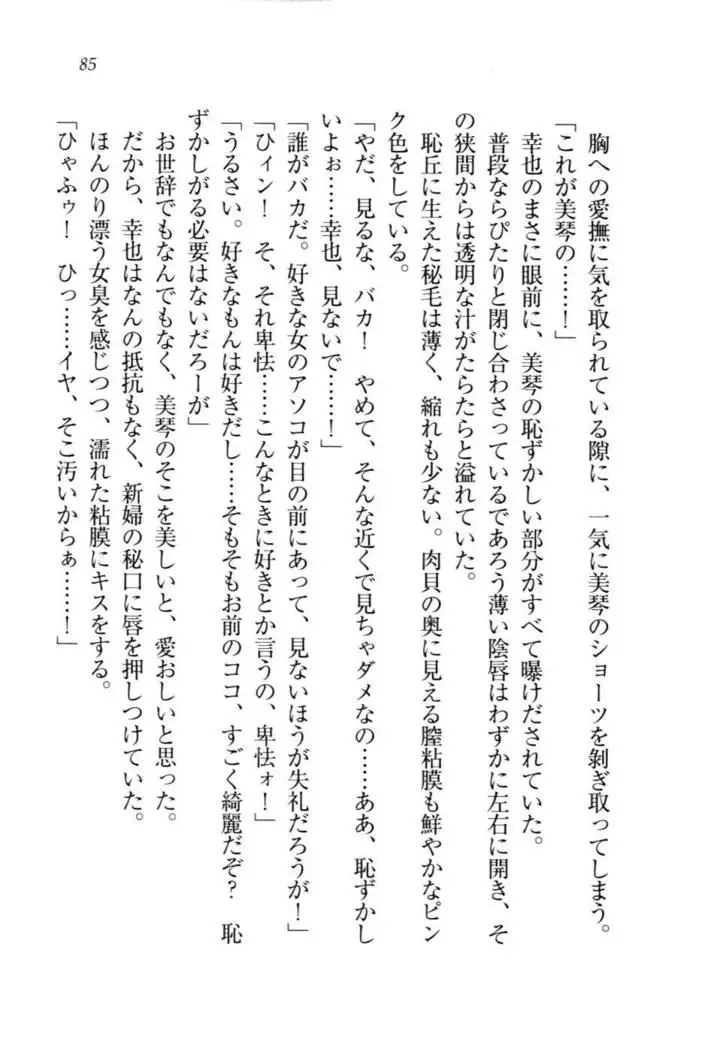 85
胸への愛撫に気を取られている隙に、一気に美琴のショーツを剝ぎ取ってしまう。
「これが美琴の……！」
幸也のまさに眼前に、美琴の恥ずかしい部分がすべて曝けだされていた。
普段ならぴたりと閉じ合わさっているであろう薄い陰唇はわずかに左右に開き、そ
の狭間からは透明な汁がたらたらと溢れていた。
恥丘に生えた秘毛は薄く、縮れも少ない。肉貝の奥に見える膣粘膜も鮮やかなピン
ク色をしている。
「やだ、見るな、バカ！　やめて、そんな近くで見ちゃダメなの……ああ、恥ずかし
いよぉ……幸也、見ないで……！」
「誰がバカだ。好きな女のアソコが目の前にあって、見ないほうが失礼だろうが！」
「ひィン！　そ、それ卑怯……こんなときに好きとか言うの、卑怯ォ！」
「うるさい。好きなもんは好きだし……そもそもお前のココ、すごく綺麗だぞ？　恥
ずかしがる必要はないだろーが」
お世辞でもなんでもなく、美琴のそこを美しいと、愛おしいと思った。
だから、幸也はなんの抵抗もなく、新婦の秘口に唇を押しつけていた。
ほんのり漂う女臭を感じつつ、濡れた粘膜にキスをする。
「ひゃふゥ！　ひっ……イヤ、そこ汚いからぁ……！」